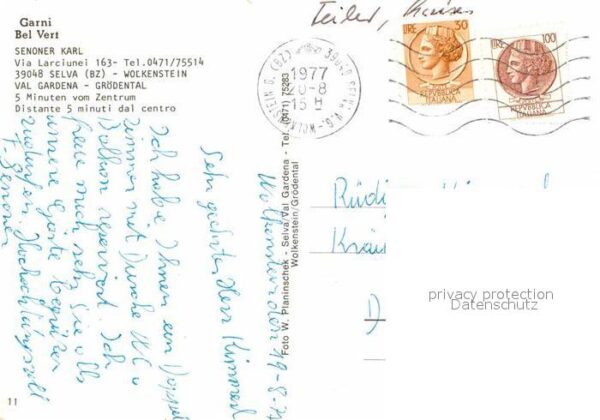 Garni
Bel Vert
SENONER KARL
Via Larciunei 163- Tel.0471/75514
39048 SELVA (BZ) - WOLKENSTEIN
VAL GARDENA - GRÖDENTAL
5 Minuten vom Zentrum
Distante 5 minuti dal centro
Wolkenstein den 19-8-7
Sehr geehrter Herr
Ich habe Ihnen ein Doppel
zimmer mit Dusche WC u
Balkon reserviert. Ich
freue mich sehr Sie als
unsere Gäste begrüßen
zu dürfen Hochachtungsvoll
F. Senoner
Foto W. Planinschek - Selva/Val Gardena - Tel. (0471) 75283
Wolkenstein/Grödental
1977
20-8
15 H
39048
(BZ)
LIRE 50
REPUBBLICA
ITALIANA
LIRE 100
REPUBBLICA
ITALIANA
Rüdi
D
privacy protection
Datenschutz
11